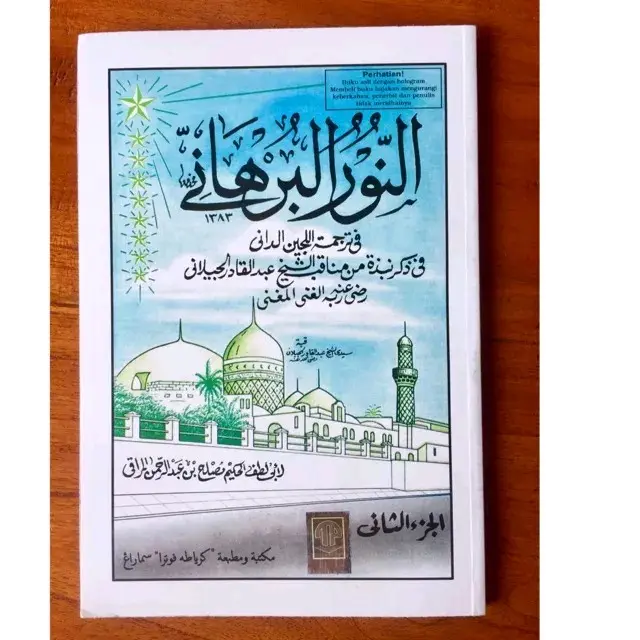 Perhatian!
Buku asli dengan hologram
Membeli buku bajakan mengurangi
keberkahan, penerbit dan penulis
tidak meridhainya
النُّورُ البُرْهَانِيّ
١٣٨٣
فى ترجمة اللجين الدانى
فى ذكر نبذة من مناقب الشيخ عبد القادر الجيلانى
رضى عنه ربه الغنى المغنى
قبة
سيدى الشيخ عبد القادر الجيلانى
لأبى لطف الحكيم مصلح بن عبد الرحمن المراقى
الجزء الثانى
مكتبة ومطبعة "كرياطه فوترا" سماراغ